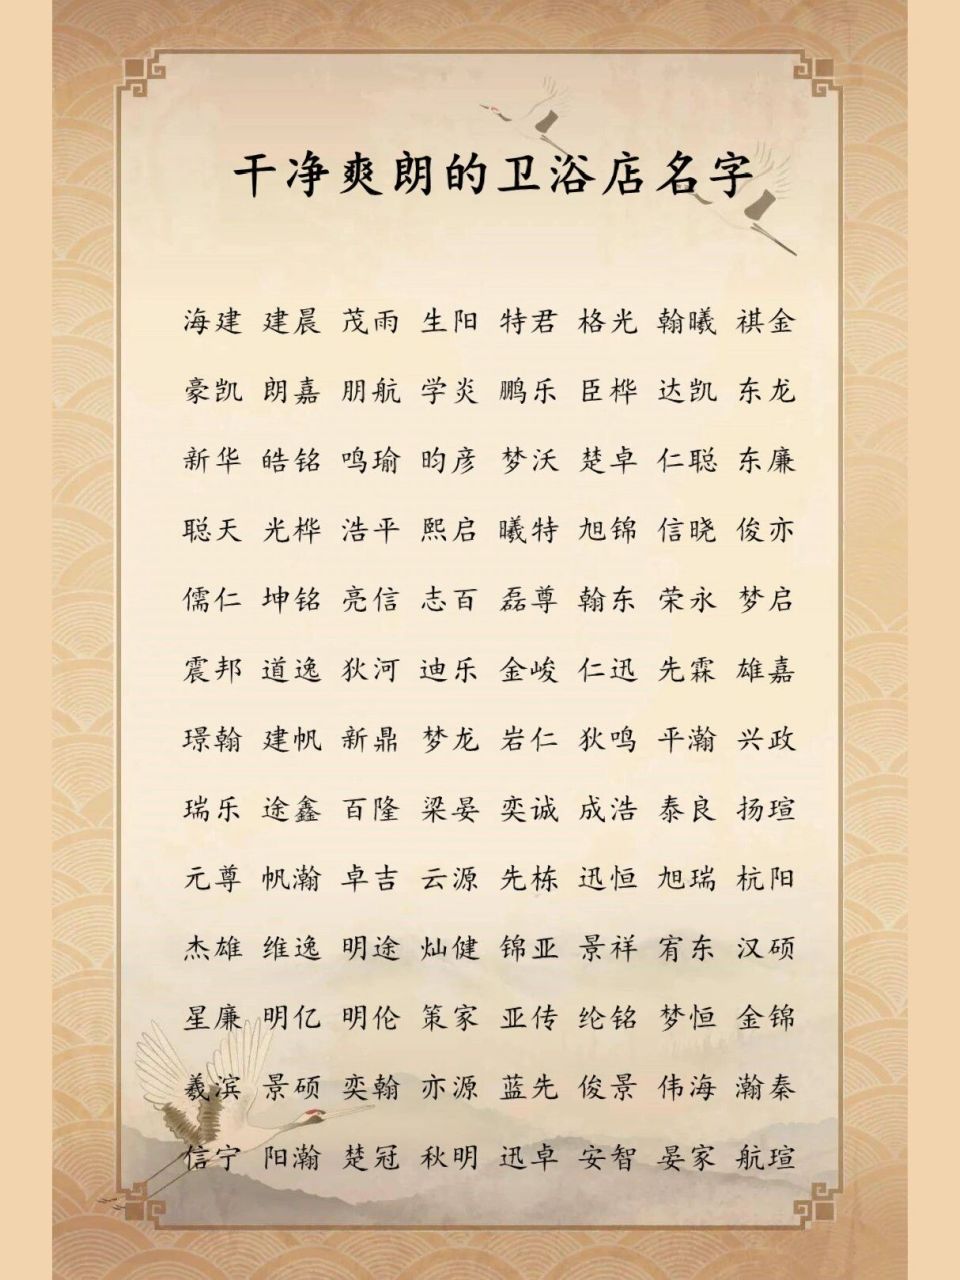 干净爽朗的卫浴店名字
海建 建晨 茂雨 生阳 特君 格光 翰曦 祺金
豪凯 朗嘉 朋航 学炎 鹏乐 臣桦 达凯 东龙
新华 皓铭 鸣瑜 昀彦 梦沃 楚卓 仁聪 东廉
聪天 光桦 浩平 熙启 曦特 旭锦 信晓 俊亦
儒仁 坤铭 亮信 志百 磊尊 翰东 荣永 梦启
震邦 道逸 狄河 迪乐 金峻 仁迅 先霖 雄嘉
璟翰 建帆 新鼎 梦龙 岩仁 狄鸣 平瀚 兴政
瑞乐 途鑫 百隆 梁晏 奕诚 成浩 泰良 扬瑄
元尊 帆瀚 卓吉 云源 先栋 迅恒 旭瑞 杭阳
杰雄 维逸 明途 灿健 锦亚 景祥 宥东 汉硕
星廉 明亿 明伦 策家 亚传 纶铭 梦恒 金锦
羲滨 景硕 奕翰 亦源 蓝先 俊景 伟海 瀚秦
信宁 阳瀚 楚冠 秋明 迅卓 安智 晏家 航瑄